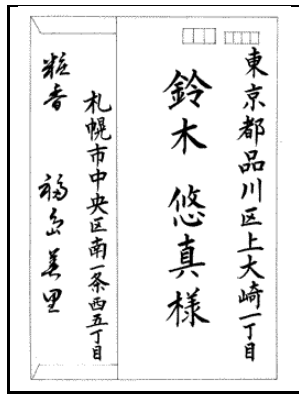 東京都品川区上大崎一丁目
鈴木 悠真様
札幌市中央区南一条西五丁目
福島美里